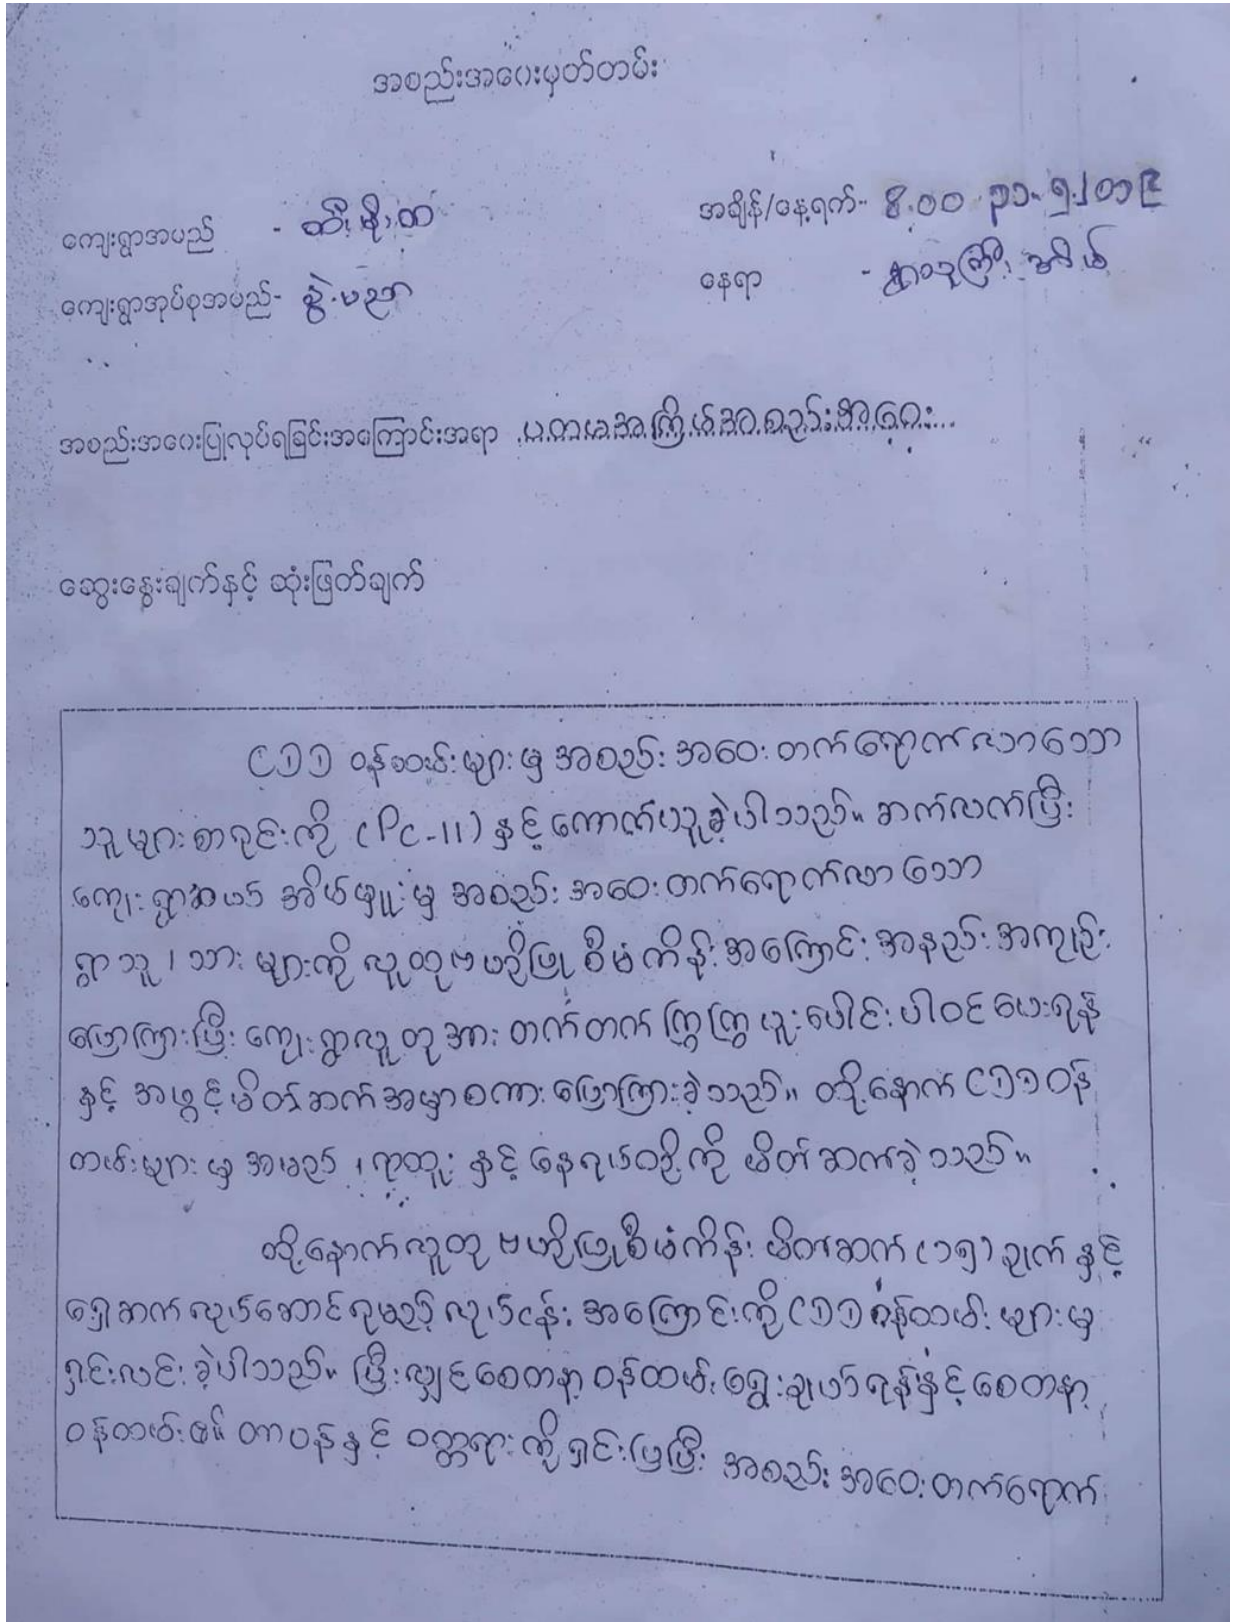 အစည်းအဝေးမှတ်တမ်း
အချိန်/နေ့ရက်- 8.00 ၃၁.၅.၂၀၁၉
ကျေးရွာအမည် - ထီးမိုးထ
နေရာ - ရွာသူကြီးအိမ်
ကျေးရွာအုပ်စုအမည်- စွဲမညာ
အစည်းအဝေးပြုလုပ်ရခြင်းအကြောင်းအရာ ပထမအကြိမ်အစည်းအဝေး...
ဆွေးနွေးချက်နှင့် ဆုံးဖြတ်ချက်
CDD ဝန်ထမ်းများမှ အစည်းအဝေးတက်ရောက်လာသော
သူများစာရင်းကို (PC-11) နှင့်ကောက်ယူခဲ့ပါသည်။ ဆက်လက်ပြီး
ကျေးရွာအုပ် အိမ်မှူးမှ အစည်းအဝေးတက်ရောက်လာသော
ရွာသူ၊သားများကို လူထုဗဟိုပြုစီမံကိန်းအကြောင်း အနည်းအကျဉ်း
ပြောကြားပြီး ကျေးရွာလူထုအား တက်တက်ကြွကြွပူးပေါင်းပါဝင်ပေးရန်
နှင့် အဖွင့်မိတ်ဆက်အမှာစကား ပြောကြားခဲ့သည်။ ထို့နောက် CDD ဝန်
ထမ်းများမှ အမည်၊ ရာထူးနှင့် နေရပ်တို့ကို မိတ်ဆက်ခဲ့သည်။
ထို့နောက်လူထုဗဟိုပြုစီမံကိန်း မိတ်ဆက် (၁၅) ချက်နှင့်
ရှေ့ဆက်လုပ်ဆောင်ရမည့်လုပ်ငန်းအကြောင်းကို CDD ဝန်ထမ်းများမှ
ရှင်းလင်းခဲ့ပါသည်။ ပြီးလျှင်စေတနာ့ဝန်ထမ်းရွေးချယ်ရန်နှင့်စေတနာ့
ဝန်ထမ်း၏ တာဝန်နှင့် ဝတ္တရားကိုရှင်းပြပြီး အစည်းအဝေးတက်ရောက်